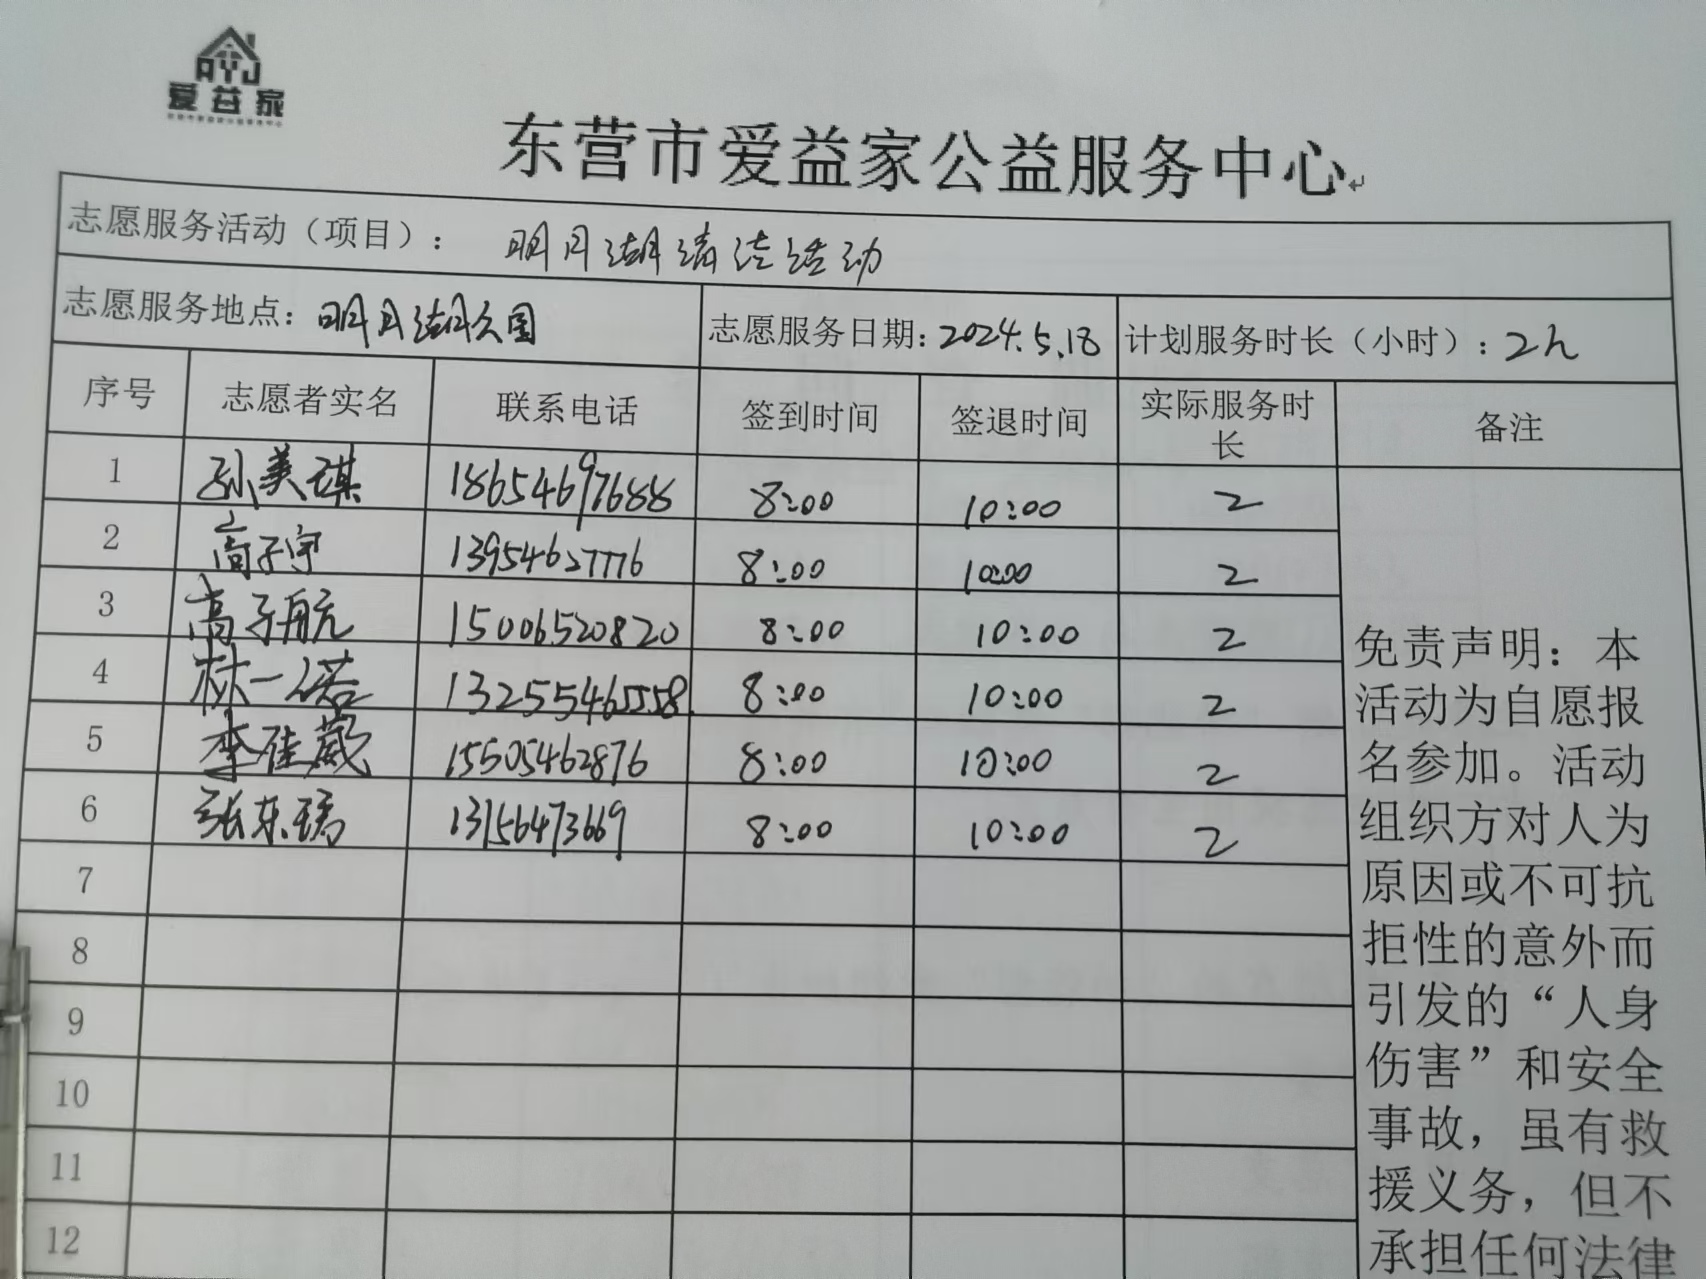 AYJ
爱益家
东营市爱益家公益服务中心
志愿服务活动（项目）： 明月湖清洁活动
志愿服务地点：明月湖公园 志愿服务日期：2024.5.18 计划服务时长（小时）：2h
序号 志愿者实名 联系电话 签到时间 签退时间 实际服务时长 备注
1 孙美琪 18654697688 8:00 10:00 2
2 高子宇 13954627776 8:00 10:00 2
3 高子航 15006520820 8:00 10:00 2
4 林一诺 13255465558 8:00 10:00 2
5 李佳葳 15505462876 8:00 10:00 2
6 张东瑞 13156473669 8:00 10:00 2
7
8
9
10
11
12
免责声明：本
活动为自愿报
名参加。活动
组织方对人为
原因或不可抗
拒性的意外而
引发的“人身
伤害”和安全
事故，虽有救
援义务，但不
承担任何法律